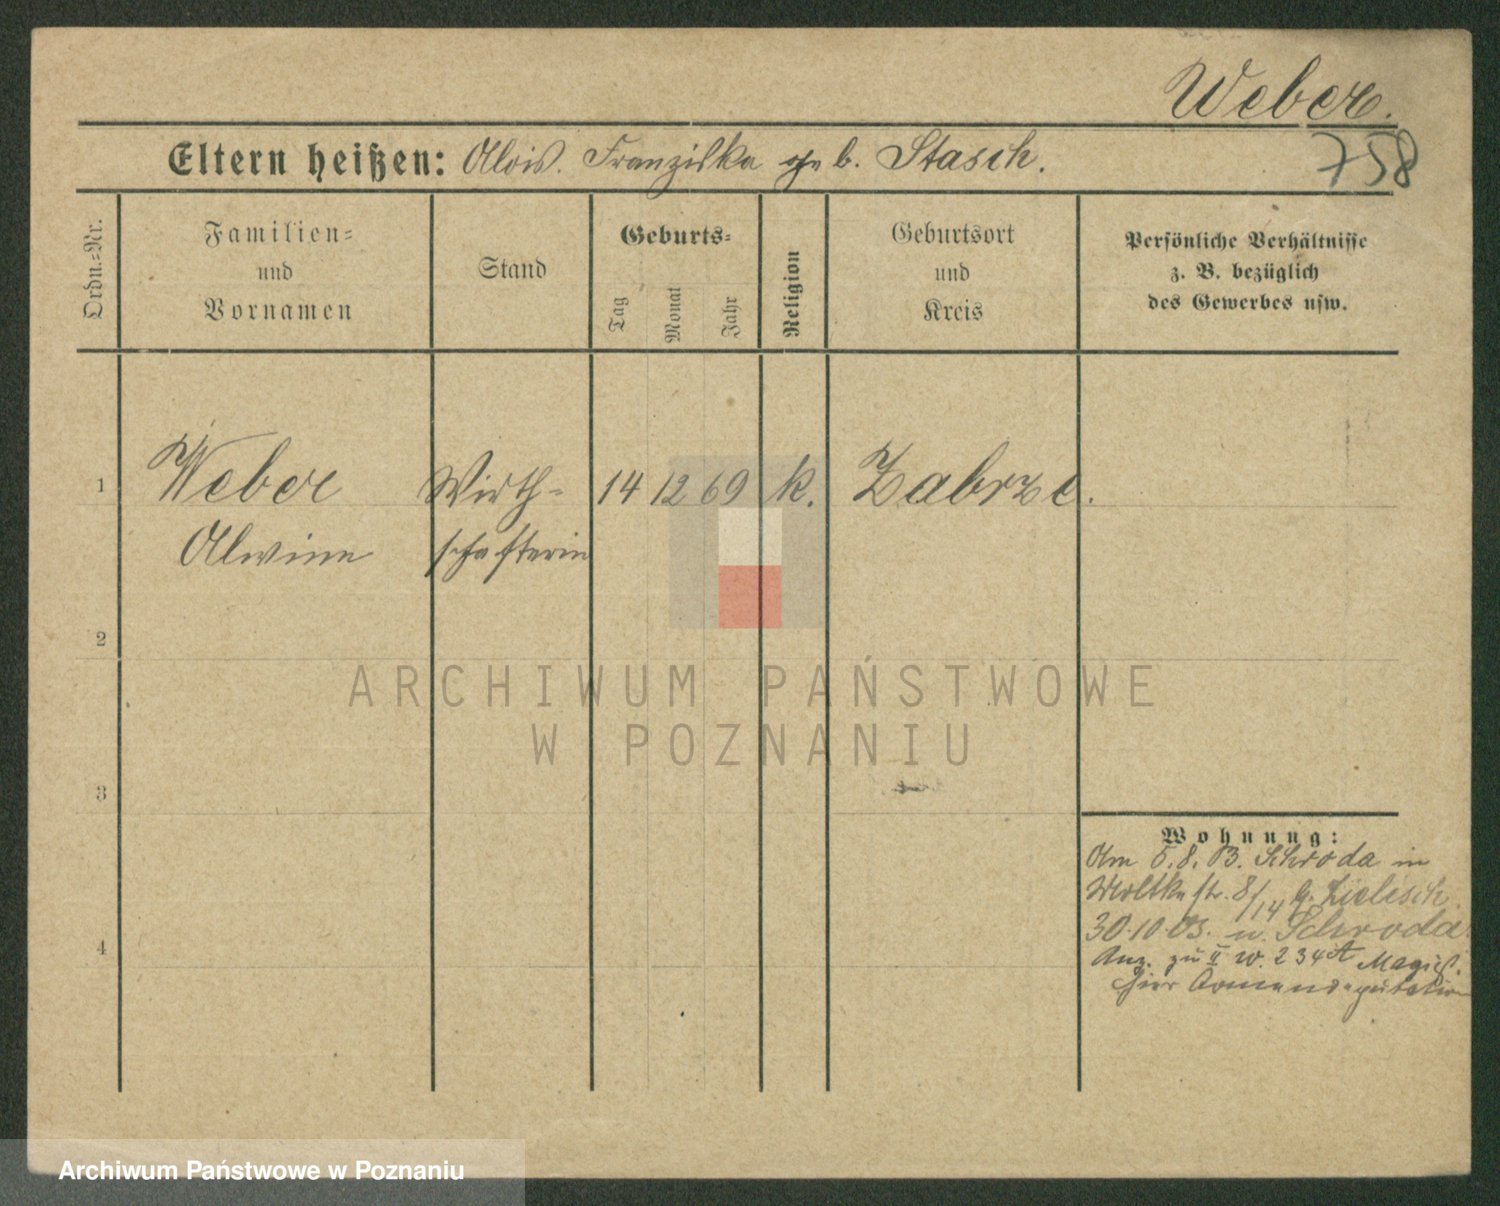 Weber.
758
Eltern heißen: Alois. Franziska geb. Stasch.
Ordn.-Nr.
Familien-
und
Vornamen
Stand
Geburts-
Tag
Monat
Jahr
Religion
Geburtsort
und
Kreis
Persönliche Verhältnisse
z. B. bezüglich
des Gewerbes usw.
1 Weber Wirth- 14 12 69 k. Zabrze.
Alwine schafterin
2
ARCHIWUM PAŃSTWOWE
W POZNANIU
3
Wohnung:
Am 5.8.03. Schroda in
Moltkestr. 8/14 b. Zielisch
30.10.03. n. Schroda
Anz. zu II W. 234A Magist.
hier Armendeputation
4
Archiwum Państwowe w Poznaniu